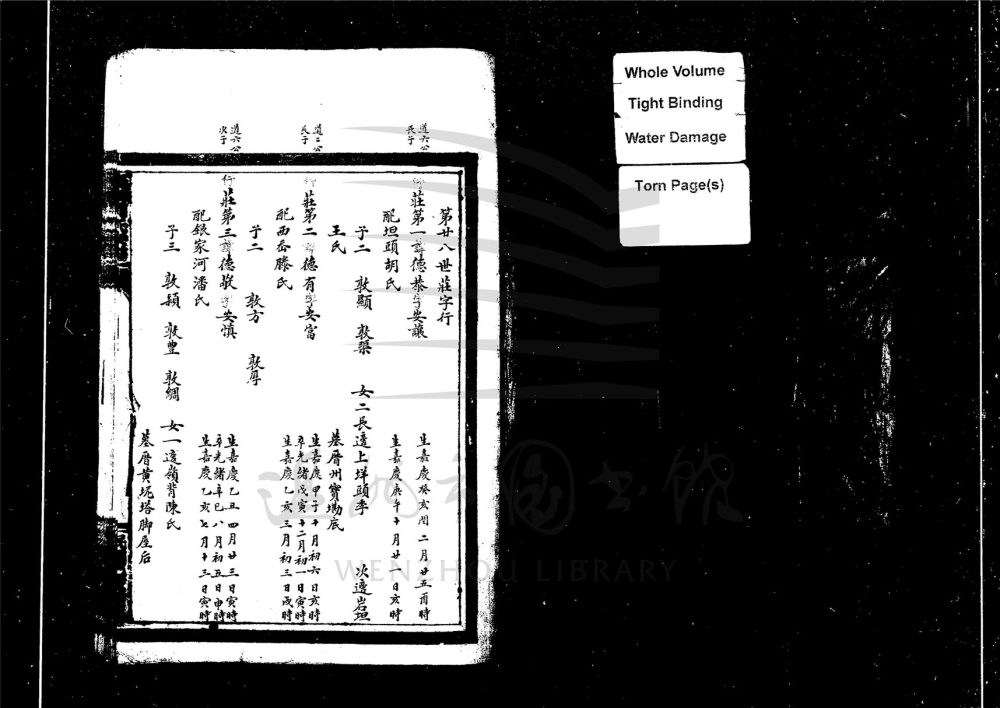 Whole Volume
Tight Binding
Water Damage
Torn Page(s)
第廿八世莊字行
道六公
長子
行莊第一諱德恭字安讓
生嘉慶癸亥閏二月廿五酉時
配坦頭胡氏
生嘉慶庚午十月廿日亥時
子二 敦顯 敦槼 女二長適上垟頭李 次適岩垣
王氏
墓厝州寶坳底
道二公
長子
行莊第二諱德有字安富
生嘉慶甲子十月初六日亥時
卒光緒戊寅十二月初一日寅時
配西岙滕氏
生嘉慶乙亥三月初三日戌時
子二 敦方 敦厚
道六公
次子
行莊第三諱德敬字安慎
生嘉慶乙丑四月廿三日寅時
卒光緒辛巳八月初五日申時
配銀家河潘氏
生嘉慶乙亥七月十三日寅時
子三 敦穎 敦豐 敦綢 女一適嶺背陳氏
墓厝黄坭塔脚屋后
温州市圖書館
WENZHOU LIBRARY